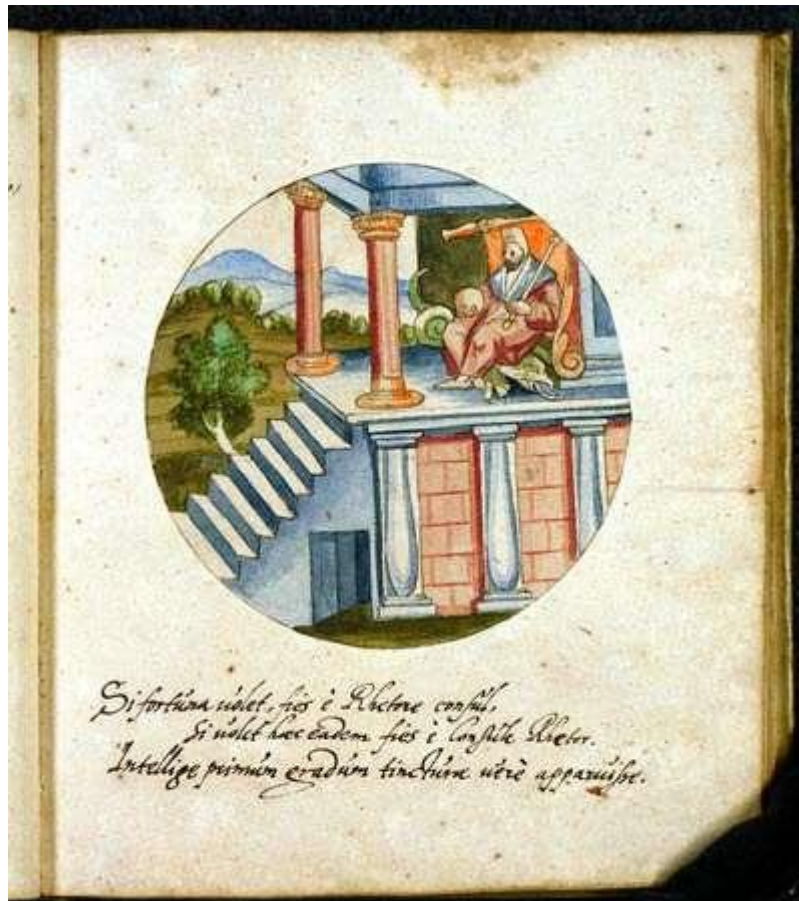 Si fortúna uólet, fiés è Rhetore consúl,
Si uolet hæc eadem fiés è Consúle Rhetor.
Intellige primúm gradúm tinctúræ uérè apparúisse.